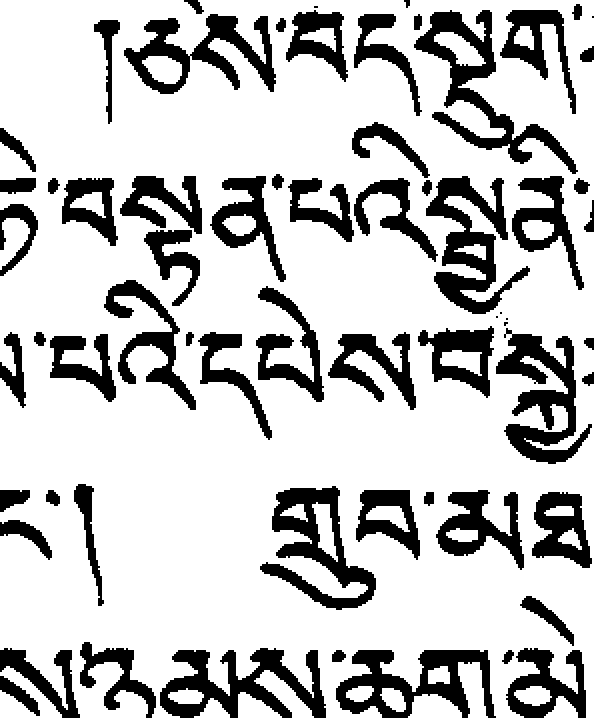 །ཅེས་བདེ་སྡུག་
ཏེ་བསྟན་པའི་སྦྱིན་
ས་པའི་དཔེས་བསྐྱ
ང་། གྲུབ་མཐ
ས་ཉམས་ཆག་མེ